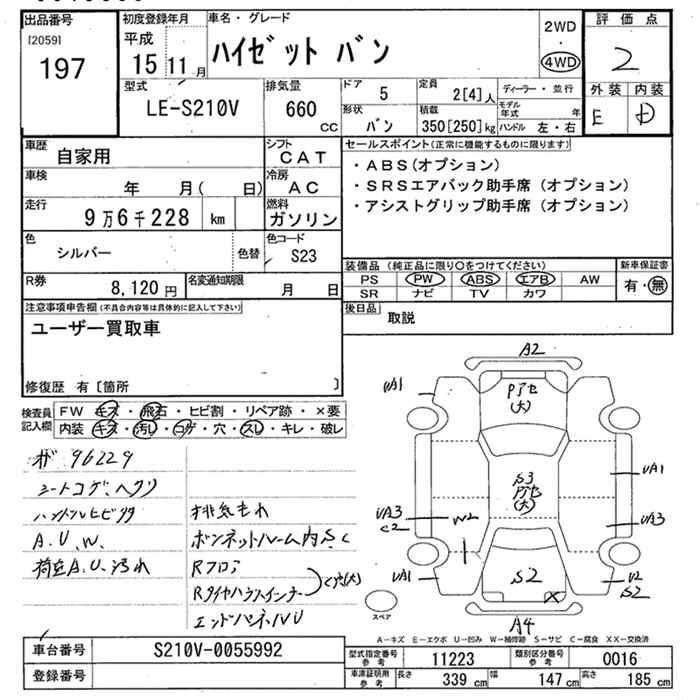 出品番号
[2059]
197
初度登録年月
平成
15年 11月
車名・グレード
ハイゼット バン
2WD
・
4WD
評価点
2
外装 内装
E D
型式
LE-S210V
排気量
660 CC
ドア
5
定員
2[4]人
ディーラー・並行
形状
バン
積載
350[250]kg
モデル年式 年
ハンドル 左・右
車歴
自家用
シフト
CAT
車検
年 月( 日)
冷房
AC
走行
9万6千228 km
燃料
ガソリン
色
シルバー
色替
色コード
S23
R券
8,120円
名変通知期限
月 日
セールスポイント(正常に機能するものに限ります)
・ABS(オプション)
・SRSエアバック助手席(オプション)
・アシストグリップ助手席(オプション)
装備品(純正品に限り○をつけてください)
新車保証書
PS PW ABS エアB AW
有・無
SR ナビ TV カワ
後日品
取説
注意事項申告欄(不具合内容等は具体的に記入して下さい)
ユーザー買取車
修復歴 有〔箇所 〕
検査員
記入欄
FW キズ・飛石・ヒビ割・リペア跡・×要
内装 キズ・汚れ・コゲ・穴・スレ・キレ・破レ
ガ 96229
シートコゲ、ヘタリ
ハンドルヒビワレ
A.U.W.
荷室A.U.汚れ
排気もれ
ボンネットルーム内S.C
Rフロア
Rタイヤハウスインナー
エンドパネルU
A2
UA1
Pアセ
(大)
UA1
S3
Pアセ
(大)
UA3
C2
W2
UA3
UA1
S2
U2
S2
X
A4
スペア
A-キズ E-エクボ U-凹み W-補修跡 S-サビ C-腐食 XX-交換済
車台番号
S210V-0055992
登録番号
型式指定番号
参考
11223
類別区分番号
参考
0016
車庫証明用
参考
長さ 339 cm
幅 147 cm
高さ 185 cm